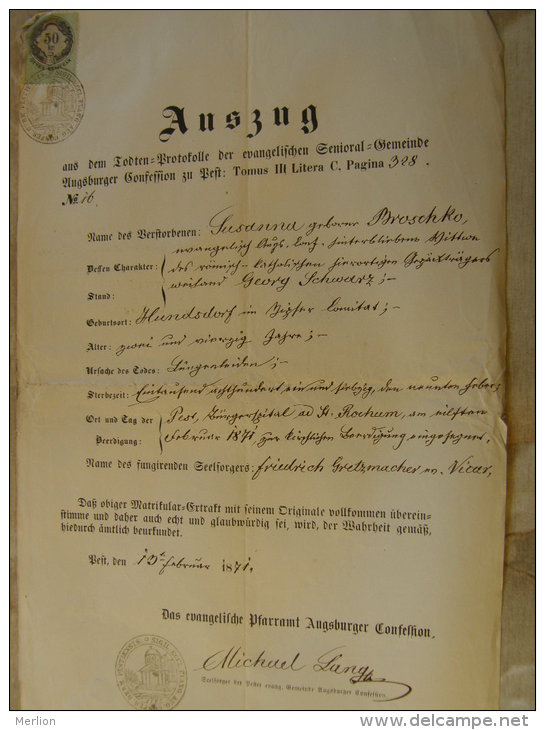 50
Auszug
aus dem Todten-Protokolle der evangelischen Senioral-Gemeinde
Augsburger Confession zu Pest: Tomus III Litera C. Pagina 328.
№ 16
Name des Verstorbenen: Susanna geborne Broschko,
evangelisch Augs. Conf. hinterbliebene Wittwe
Dessen Charakter: des römisch-katholischen hierortigen Gepäckträgers
Stand: weiland Georg Schwarz;-
Geburtsort: Hundsdorf im Zipser Comitat;-
Alter: zwei und vierzig Jahre;-
Ursache des Todes: Lungenleiden;-
Sterbezeit: Eintausend achthundert ein und siebzig, den neunten Feber.
Ort und Tag der Pest, Bürgerspital ad St. Rochum, am eilften
Beerdigung: Februar 1871, zur kirchlichen Beerdigung eingesegnet.
Name des fungirenden Seelsorgers: Friedrich Gretzmacher Vicar,
Daß obiger Matrikular-Extrakt mit seinem Originale vollkommen überein-
stimme und daher auch echt und glaubwürdig sei, wird, der Wahrheit gemäß,
hiedurch ämtlich beurkundet.
Pest, den Februar 1871.
Das evangelische Pfarramt Augsburger Confession.
Michael Lang
Seelsorger der Pester evang. Gemeinde Augsburger Confession.
Merlion
www.delcampe.net